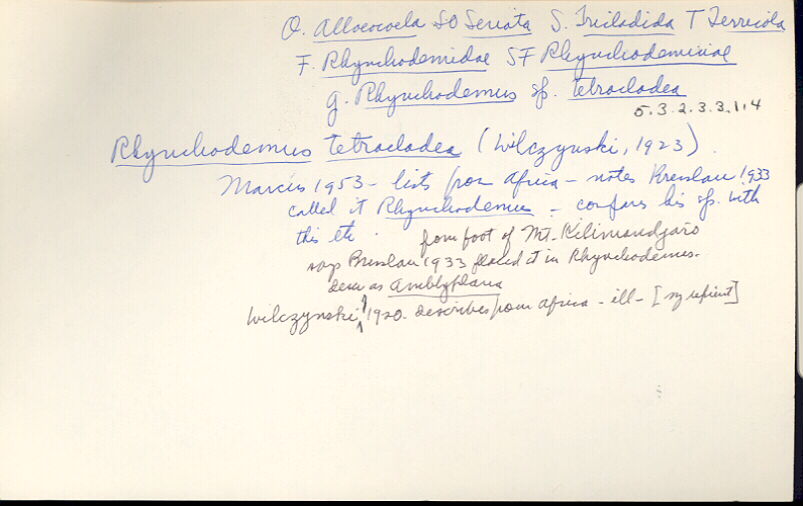 O. Alloeocoela SO Seriata S. Tricladida T Terricola
F. Rhynchodemidae SF Rhynchodeminae
g. Rhynchodemus sp. tetrocladea
5.3.2.3.3.1.4
Rhynchodemus tetrocladea (Wilczynski, 1923).
Marcus 1953 - lists from Africa - notes Bresslau 1933
called it Rhynchodemus - compares his sp. with
this etc. from foot of Mt. Kilimandjaro
says Bresslau 1933 placed it in Rhynchodemus.
desc as Amblyplana
Wilczynski, 1920. describes from Africa - ill - [my reprint]